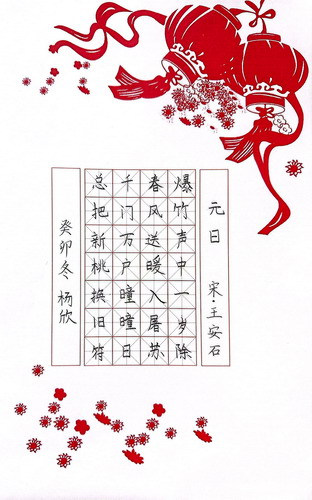 元日
宋·王安石
爆竹声中一岁除
春风送暖入屠苏
千门万户曈曈日
总把新桃换旧符
癸卯冬 杨欣